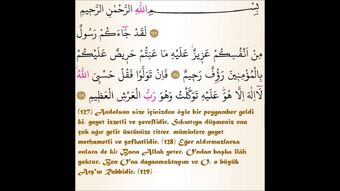 بِسْمِ اللهِ الرَّحْمٰنِ الرَّحِيمِ
لَقَدْ جَٓاءَكُمْ رَسُولٌ
مِنْ اَنْفُسِكُمْ عَزِيزٌ عَلَيْهِ مَا عَنِتُّمْ حَرِيصٌ عَلَيْكُمْ
بِالْمُؤْمِنِينَ رَؤُ۫فٌ رَحِيمٌ فَاِنْ تَوَلَّوْا فَقُلْ حَسْبِيَ اللهُ
لَٓا اِلٰهَ اِلَّا هُوَ عَلَيْهِ تَوَكَّلْتُ وَهُوَ رَبُّ الْعَرْشِ الْعَظِيمِ
(127) Andolsun size içinizden öyle bir peygamber geldi
ki, gayet izzetli ve şereflidir. Sıkıntıya düşmeniz ona
çok ağır gelir üstünüze titrer, müminlere gayet
merhametli ve şefkatlidir. (128) Eğer aldırmazlarsa
onlara de ki: Bana Allah yeter. O'ndan başka ilâh
yoktur. Ben O'na dayanmaktayım ve O, o büyük
Arş'ın Rabbidir. (129)